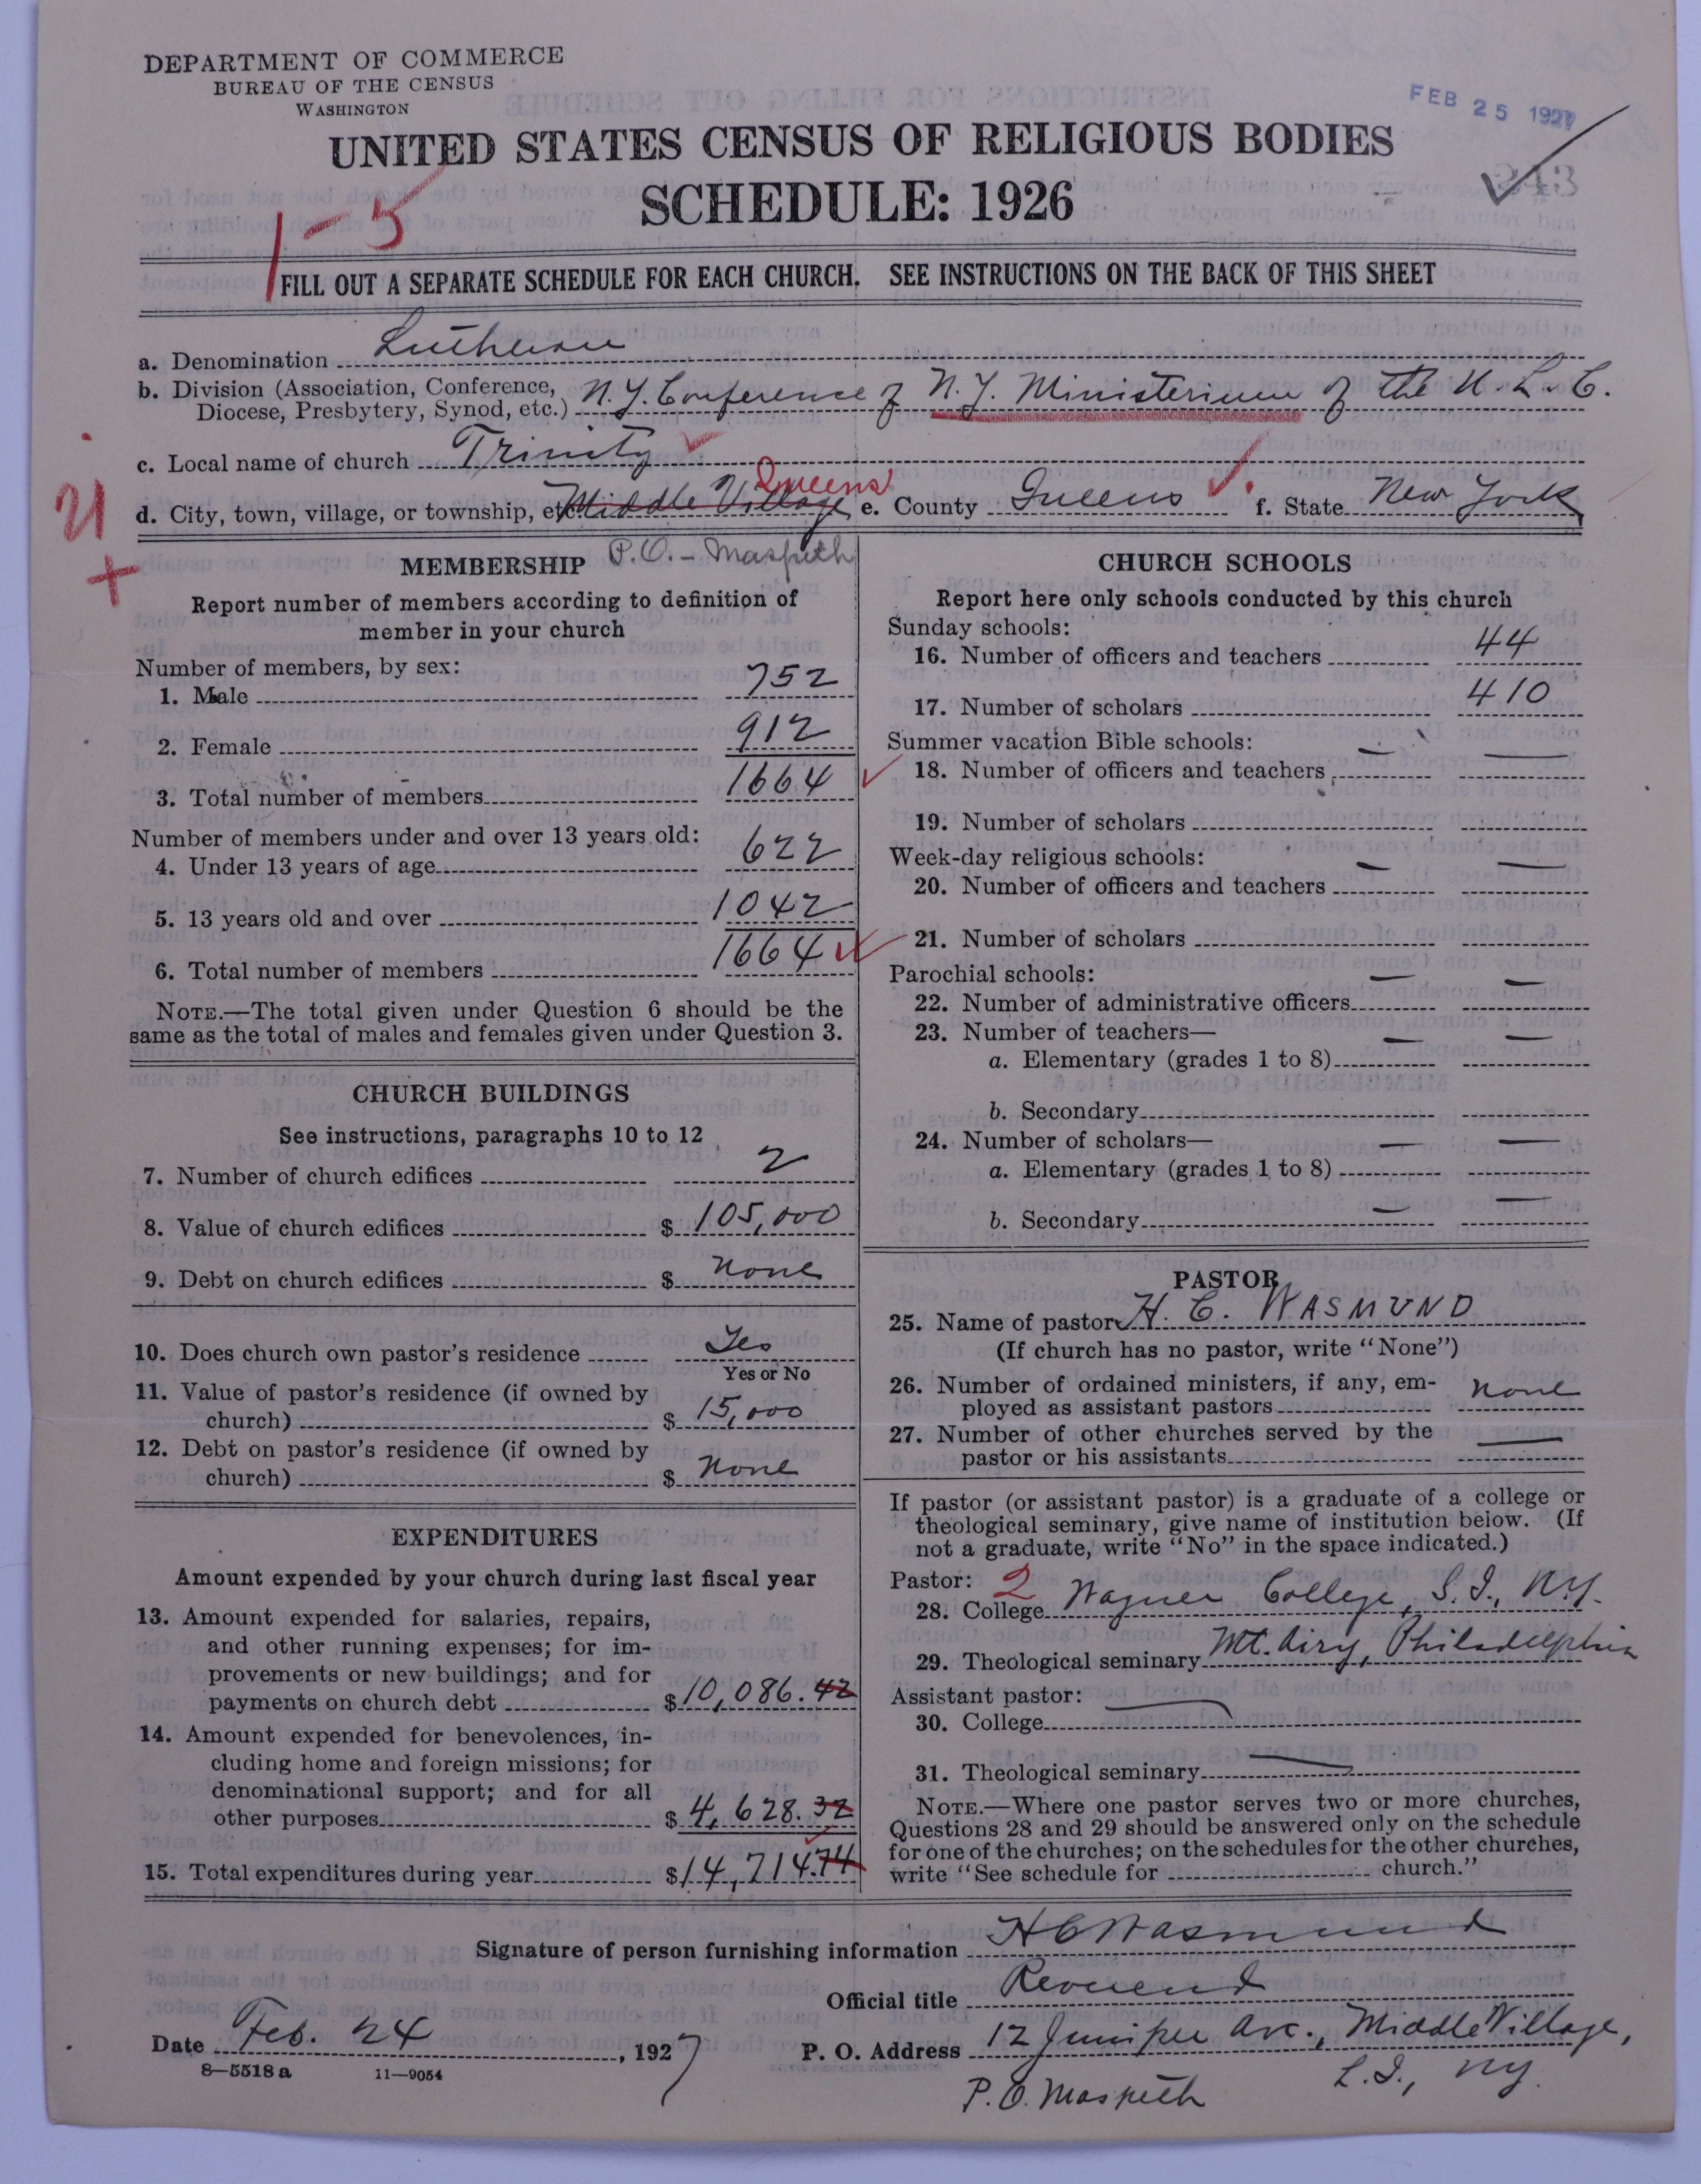 DEPARTMENT OF COMMERCE
BUREAU OF THE CENSUS
WASHINGTON
FEB 25 1927
UNITED STATES CENSUS OF RELIGIOUS BODIES
SCHEDULE: 1926
243
1-5
FILL OUT A SEPARATE SCHEDULE FOR EACH CHURCH. SEE INSTRUCTIONS ON THE BACK OF THIS SHEET
a. Denomination Lutheran
b. Division (Association, Conference, Diocese, Presbytery, Synod, etc.) N.Y. Conference of N.Y. Ministerium of the U.L.C.
c. Local name of church Trinity
Queens
d. City, town, village, or township, etc. Middle Village e. County Queens f. State New York
P.O. - Maspeth
MEMBERSHIP
Report number of members according to definition of
member in your church
Number of members, by sex:
1. Male 752
2. Female 912
3. Total number of members 1664
Number of members under and over 13 years old:
4. Under 13 years of age 622
5. 13 years old and over 1042
6. Total number of members 1664
NOTE.—The total given under Question 6 should be the
same as the total of males and females given under Question 3.
CHURCH BUILDINGS
See instructions, paragraphs 10 to 12
7. Number of church edifices 2
8. Value of church edifices $ 105,000
9. Debt on church edifices $ none
10. Does church own pastor's residence Yes
Yes or No
11. Value of pastor's residence (if owned by
church) $ 15,000
12. Debt on pastor's residence (if owned by
church) $ none
EXPENDITURES
Amount expended by your church during last fiscal year
13. Amount expended for salaries, repairs,
and other running expenses; for im-
provements or new buildings; and for
payments on church debt $ 10,086.42
14. Amount expended for benevolences, in-
cluding home and foreign missions; for
denominational support; and for all
other purposes $ 4,628.32
15. Total expenditures during year $ 14,714.74
CHURCH SCHOOLS
Report here only schools conducted by this church
Sunday schools:
16. Number of officers and teachers 44
17. Number of scholars 410
Summer vacation Bible schools:
18. Number of officers and teachers —
19. Number of scholars
Week-day religious schools:
20. Number of officers and teachers —
21. Number of scholars
Parochial schools:
22. Number of administrative officers —
23. Number of teachers—
a. Elementary (grades 1 to 8) —
b. Secondary
24. Number of scholars—
a. Elementary (grades 1 to 8) —
b. Secondary —
PASTOR
25. Name of pastor H. C. WASMUND
(If church has no pastor, write "None")
26. Number of ordained ministers, if any, em-
ployed as assistant pastors none
27. Number of other churches served by the
pastor or his assistants —
If pastor (or assistant pastor) is a graduate of a college or
theological seminary, give name of institution below. (If
not a graduate, write "No" in the space indicated.)
Pastor: 2
28. College Wagner College, S.I., N.Y.
29. Theological seminary Mt. Airy, Philadelphia
Assistant pastor:
30. College —
31. Theological seminary —
NOTE.—Where one pastor serves two or more churches,
Questions 28 and 29 should be answered only on the schedule
for one of the churches; on the schedules for the other churches,
write "See schedule for church."
Signature of person furnishing information H C Wasmund
Official title Reverend
Date Feb. 24, 1927
P. O. Address 12 Juniper Ave., Middle Village,
L.I., N.Y.
P.O. Maspeth
8—5518 a 11—9054